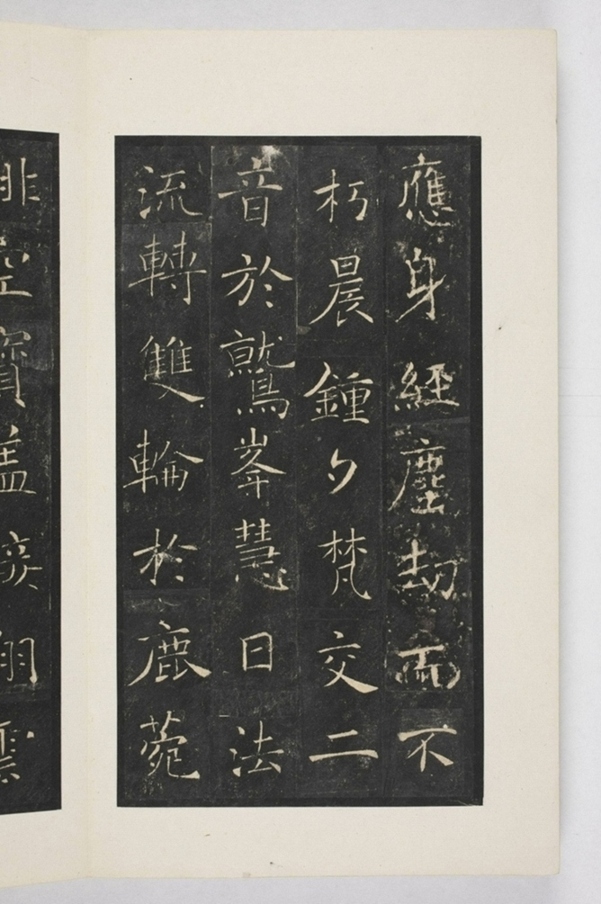 應身經塵劫而不
朽晨鍾夕梵交二
音於鷲峯慧日法
流轉雙輪於鹿菀
排空寶蓋接翔雲